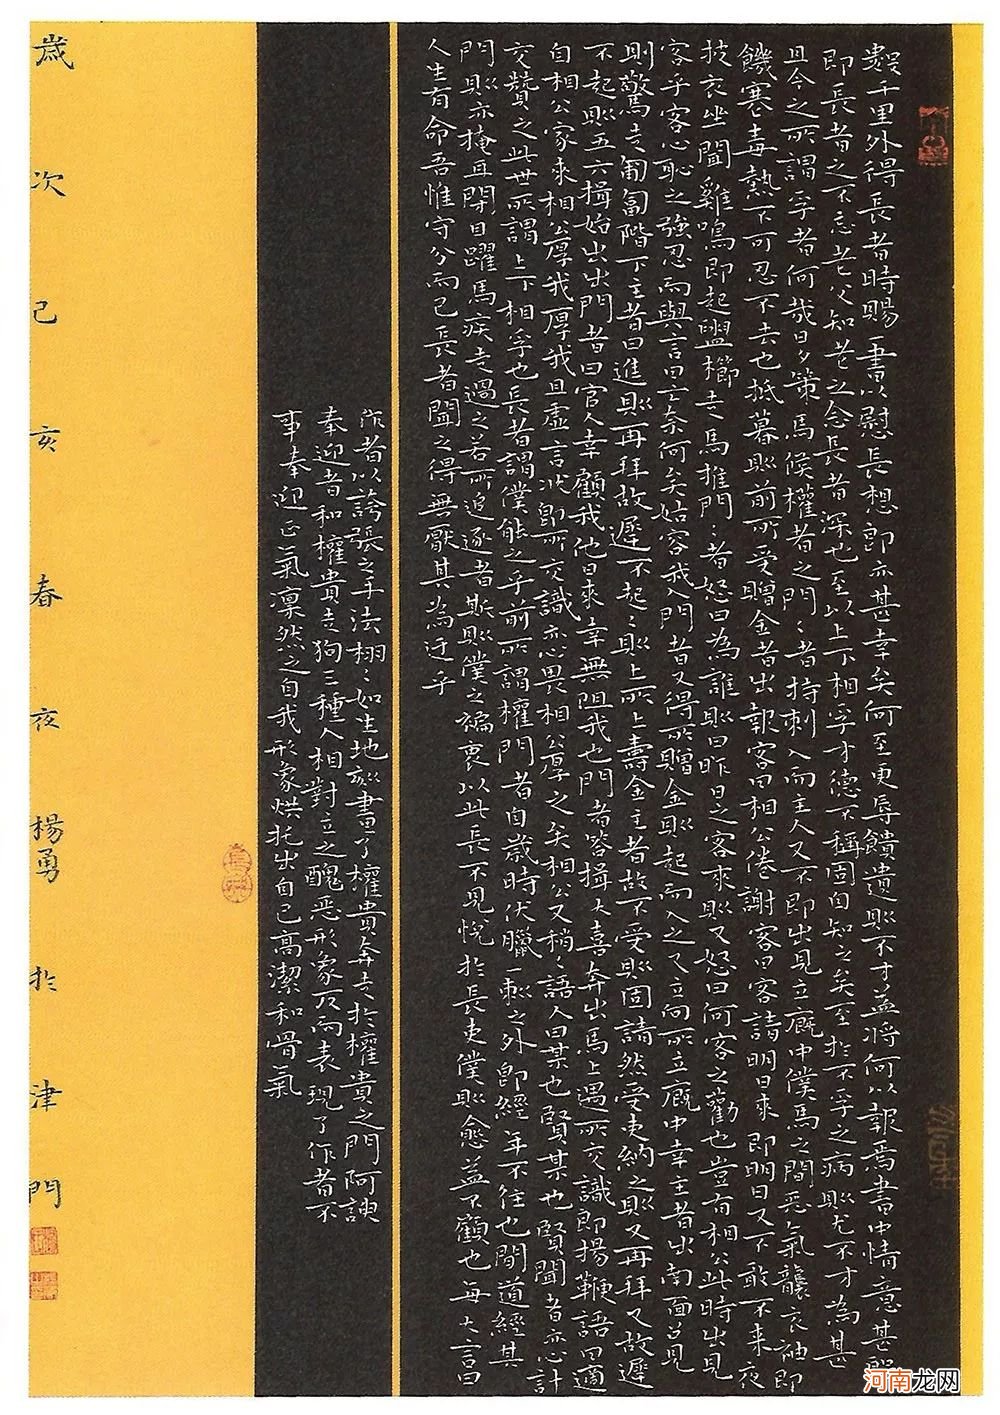 數千里外得長者時賜一書以慰長想即亦甚幸矣何至更辱饋遺則不才益將何以報焉書中情意甚殷
即長者之不忘老父知老之念長者深也至以上下相孚才德不稱固自知之矣至於不孚之病則尤不才為甚
且今之所謂孚者何哉日夕策馬候權者之門〻者持刺入而主人又不即出見立廐中僕馬之間惡氣襲衣袖即
饑寒毒熱不可忍不去也抵暮則前所受贈金者出報客曰相公倦謝客曰客請明日來即明日又不敢不來夜
披衣坐聞雞鳴即起盥櫛走馬推門〻者怒曰為誰則曰昨日之客來則又怒曰何客之勤也豈有相公此時出見
客乎客心恥之強忍而與言曰亡奈何矣姑容我入門者又得所贈金則起而入之又立向所立廐中幸主者出南面召見
則驚走匍匐階下主者曰進則再拜故遲不起〻則上所上壽金主者故不受則固請然受吏納之則又再拜又故遲
不起則五六揖始出出門者曰官人幸顧我他日來幸無阻我也門者答揖大喜奔出馬上遇所交識即揚鞭語曰適
自相公家來相公厚我厚我且虛言狀即所交識亦心畏相公厚之矣相公又稍〻語人曰某也賢某也賢聞者亦心計
交贊之此世所謂上下相孚也長者謂僕能之乎前所謂權門者自歲時伏臘一刺之外即經年不往也間道經其
門則亦掩耳閉目躍馬疾走過之若所追逐者斯則僕之褊衷以此長不見悅於長吏僕則愈益不顧也每大言曰
人生有命吾惟守分而已長者聞之得無厭其為迂乎
作者以誇張之手法栩〻如生地刻畫了權貴奔走於權貴之門阿諛
奉迎者和權貴走狗三種人相對立之醜惡形象反向表現了作者不
事奉迎正氣凜然之自我形象烘托出自己高潔和骨氣
歲次己亥春夜楊勇於津門
河南龙网